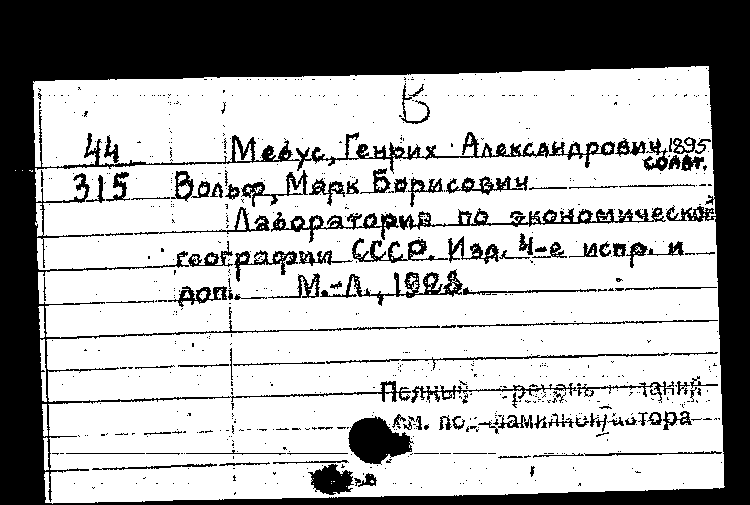 В
44 Мебус, Генрих Александрович, 1895
соавт.
315 Вольф, Марк Борисович
Лаборатория по экономической
географии СССР. Изд. 4-е испр. и
доп. М.-Л., 1928.
Полный перечень изданий
см. под фамилией автора